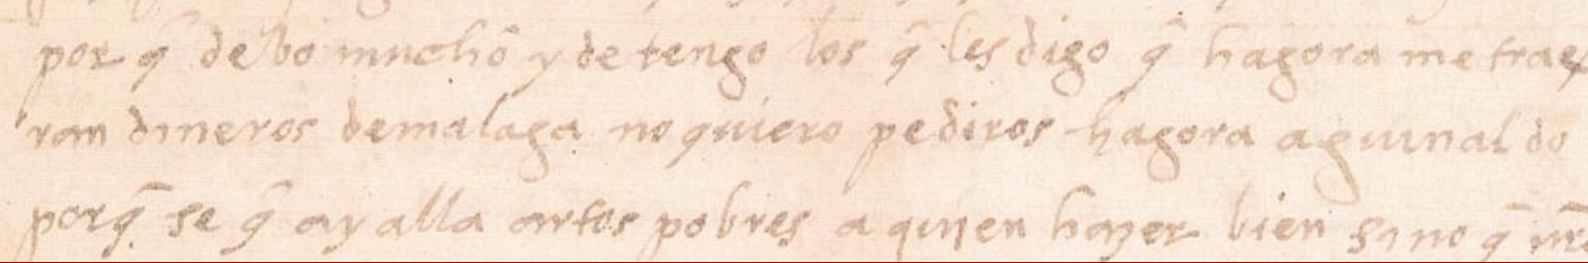 porq̃ debo mucho y detengo los q̃ les digo q̃ hagora me trae
ran dineros demalaga no quiero pediros hagora aguinaldo
porq̃ se q̃ ay alla artos pobres a quien hazer bien sino q̃